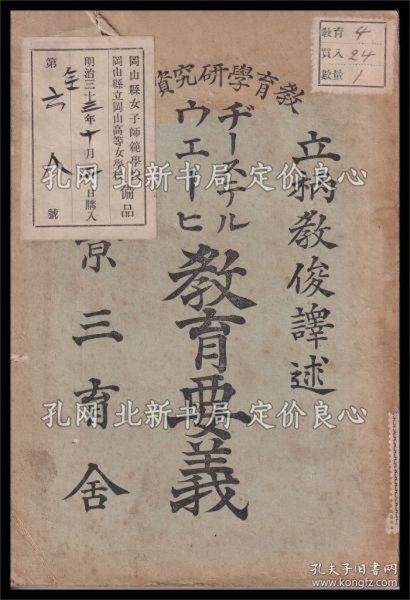 教育學研究資
立柄教俊譯述
ヂーステル
ウエーヒ
教育要義
京三育舍
岡山縣女子師範學校
岡山縣立岡山高等女學校
備品
明治三十三年十月 日購入
第 六八 號
教育 4
買入 24
數量 1
孔网 北新书局 定价良心
孔网 北新书局 定价良心
孔网 北新书局 定价良心
孔夫子旧书网
www.kongfz.com